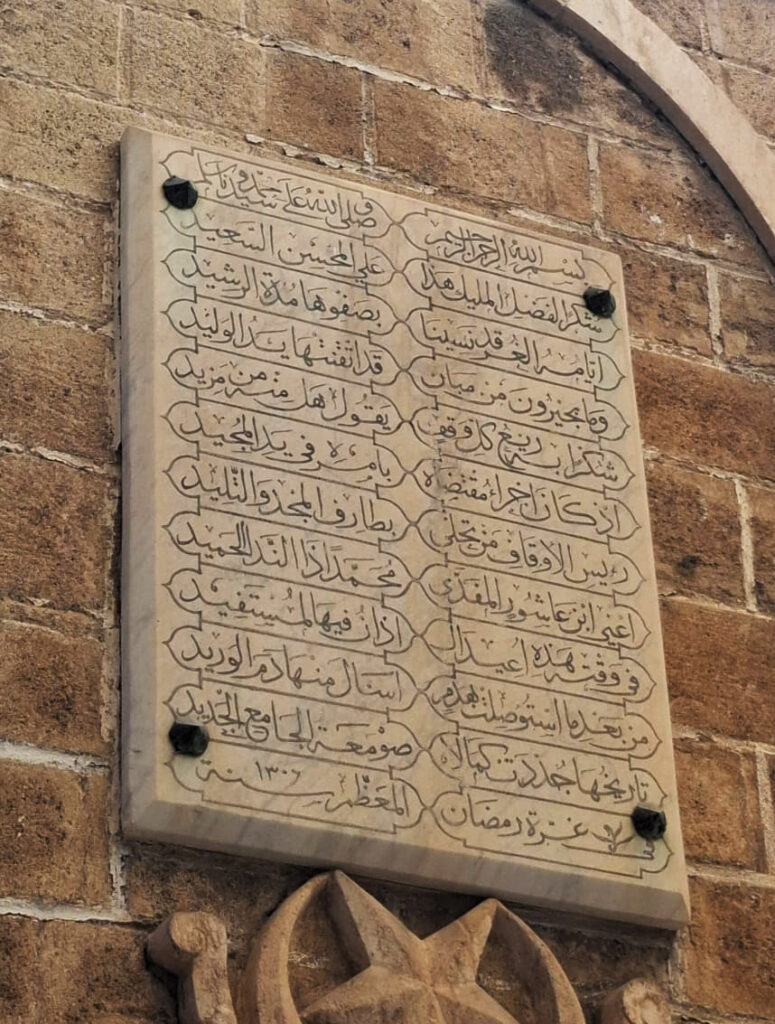 بسم الله الرحمن الرحيم وصلى الله على سيدنا
شكرا لفضل المليك هذا على المحسن السعيد
ايامه الغر قد نسينا بصفوها مدة الرشيد
وما بخيرون من مبان قد اتقنتها يد الوليد
شكرا ريع كل وقف يقول هل منه من مزيد
اذ كان اجراء مقتضاه بامره في يد المجيد
رءيس الاوقاف من تحلى بطارف المجد والتليد
اعني ابن عاشور المفدى محمدا ذا الندا الحميد
في وقته هذه اعيد اذان فيها لمستفيد
من بعد ما استوصلت بهدم اسال منها دم الوريد
تاريخها جددت كمالا صومعة الجامع الجديد
غرة رمضان المعظم سنة ١٣٠٦